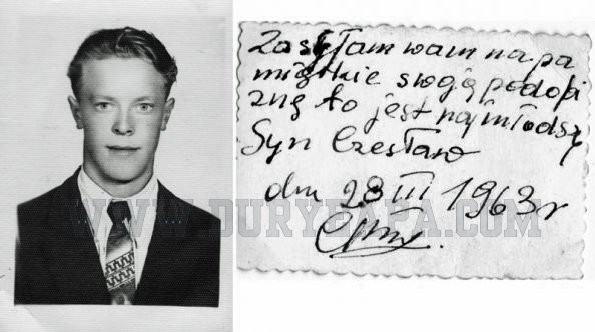 Zasyłam wam na pa
miątkie swoją podobi
znę to jest najmłodszy
Syn Czesław
dnia 28 III 1963 r
WWW.DURYBABA.COM